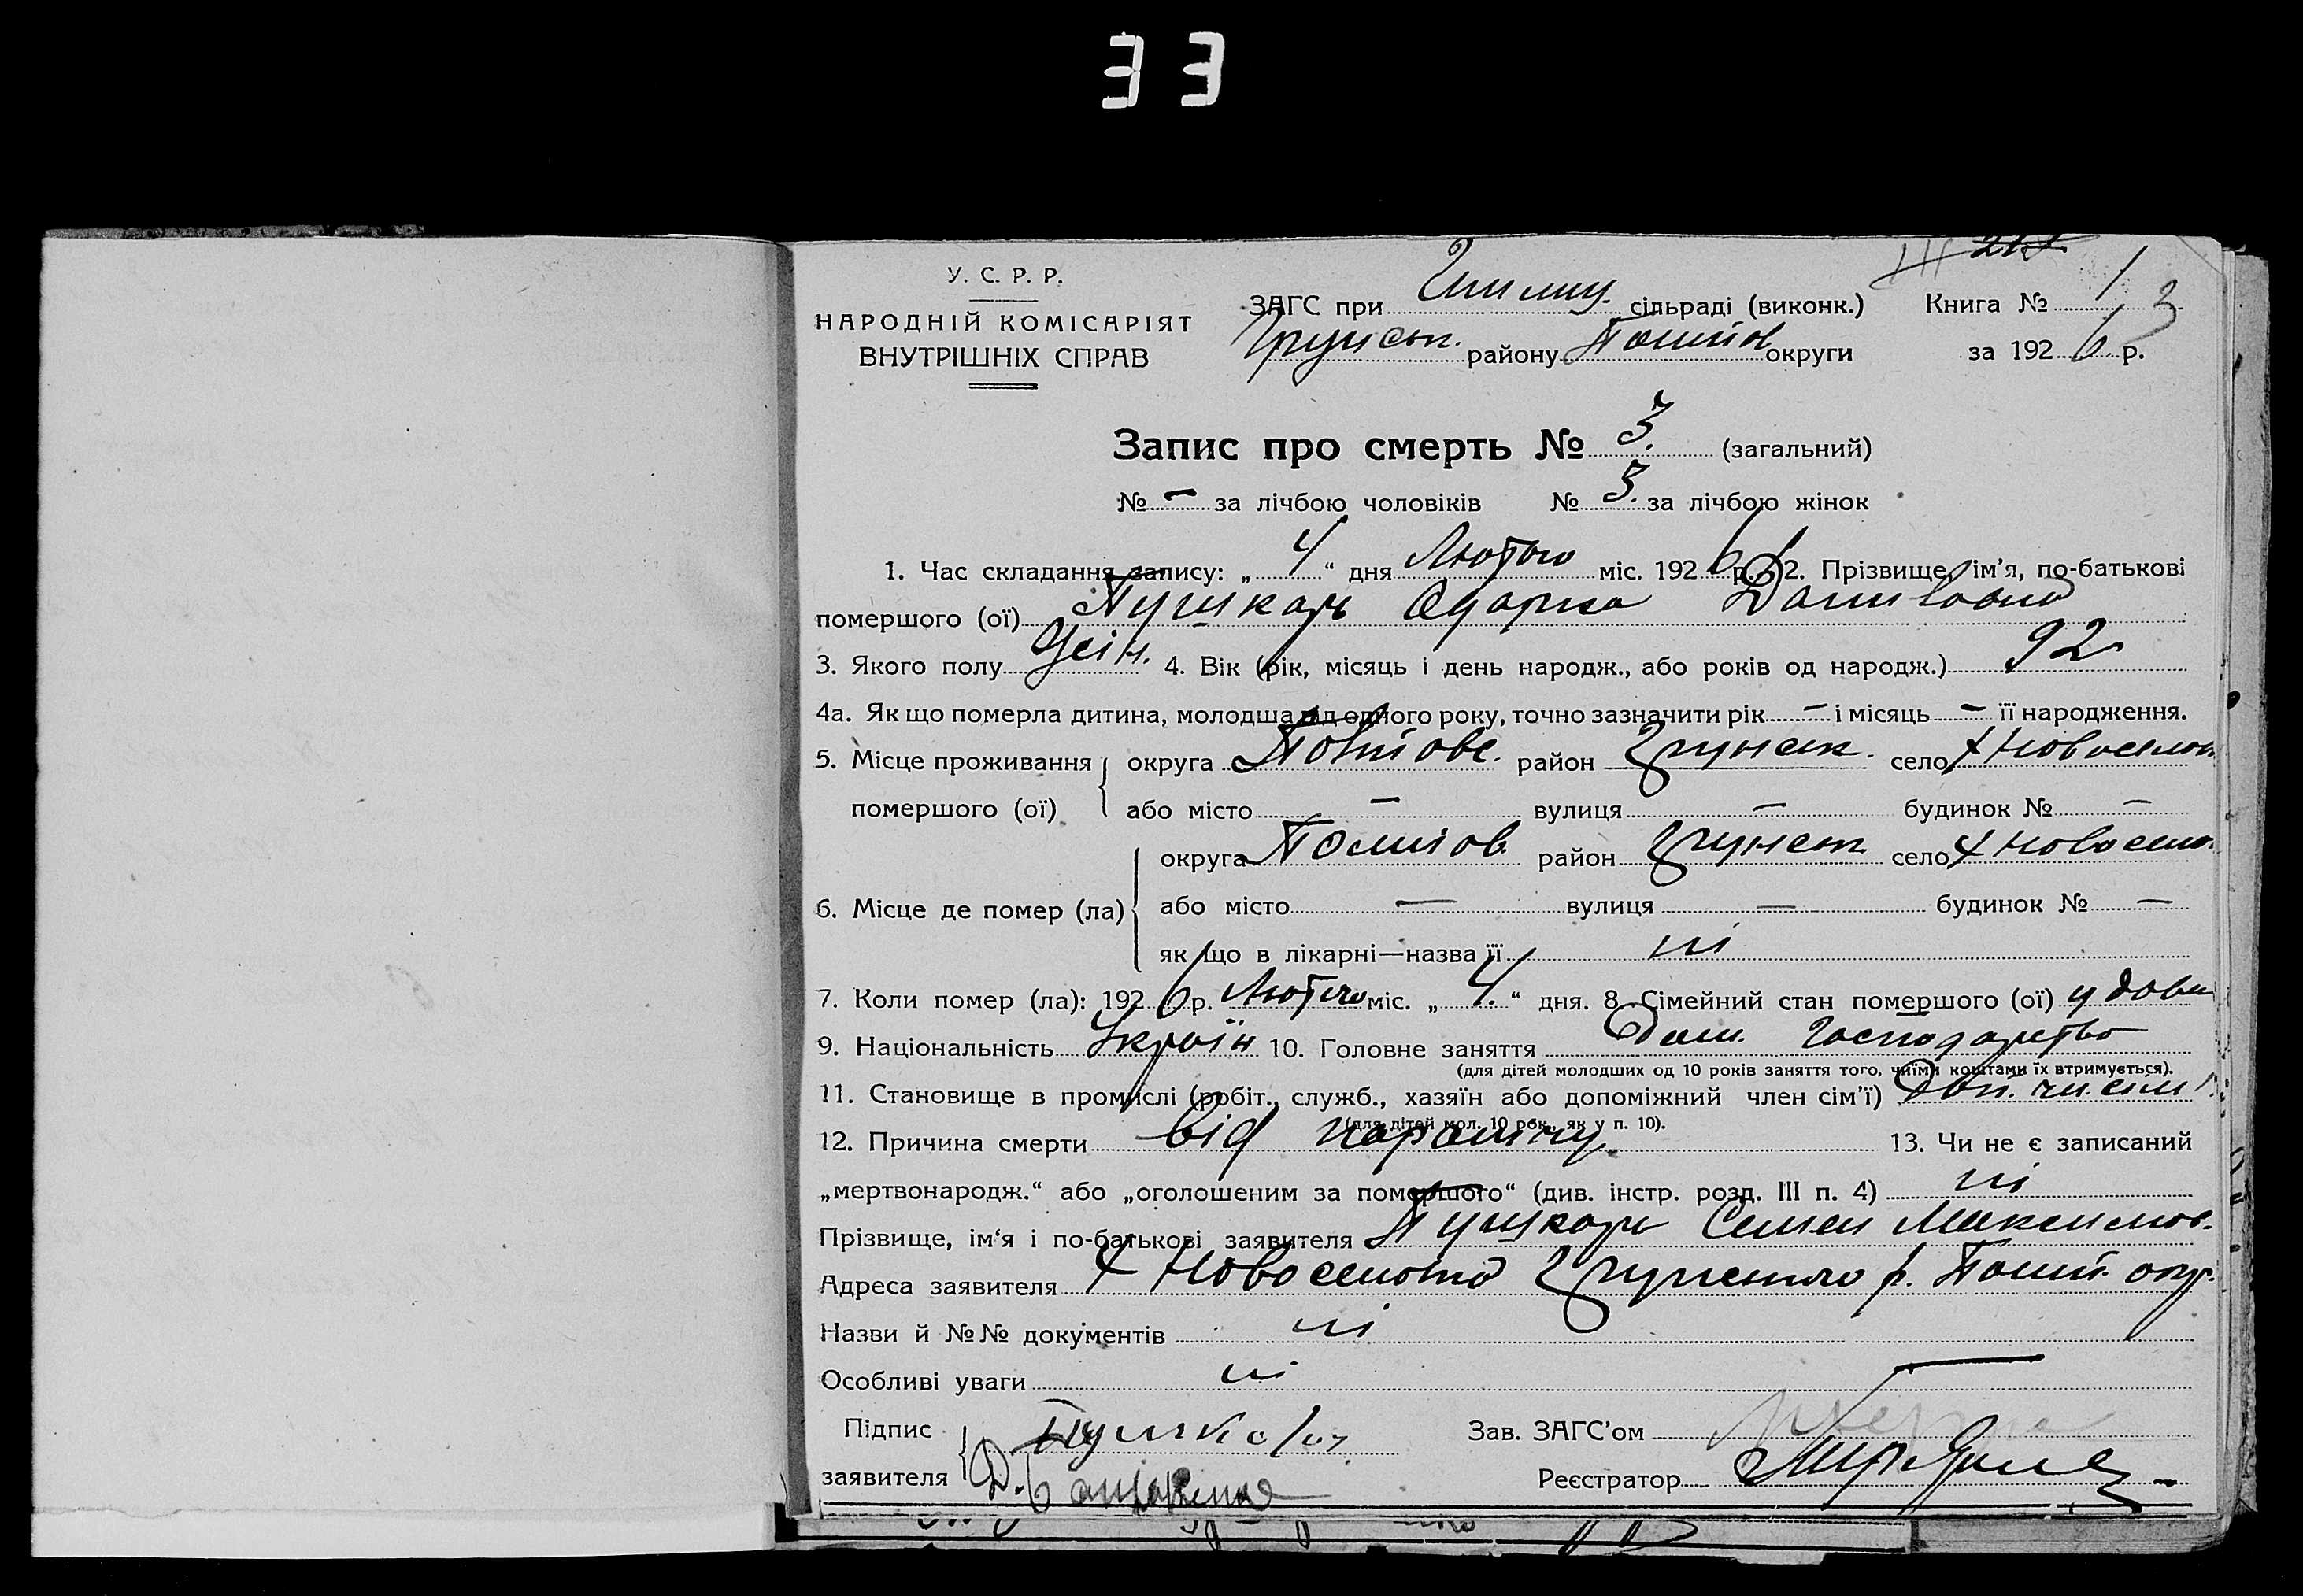 33
У. С. Р. Р.
НАРОДНІЙ КОМІСАРІЯТ
ВНУТРІШНІХ СПРАВ
ЗАГС при сільраді (виконк.) Книга № 1
Грунськ. району Полтов округи за 1926 р.
Запис про смерть № 3. (загальний)
№ — за лічбою чоловіків № 3. за лічбою жінок
1. Час складання запису: „4“ дня Лютого міс. 1926 р. 2. Прізвище, ім’я, по-батькові
помершого (ої) Пушкарь Одарка Даниловна
3. Якого полу Жін. 4. Вік (рік, місяць і день народж., або років од народж.) 92
4а. Як що померла дитина, молодша від одного року, точно зазначити рік — і місяць — її народження.
5. Місце проживання округа Полтовс. район Грунськ. село х Новоселов
помершого (ої) або місто — вулиця — будинок № —
округа Полтов район Грунськ село х Новосело
6. Місце де помер (ла) або місто — вулиця — будинок № —
як що в лікарні—назва її ні
7. Коли помер (ла): 1926 р. Лютого міс. „4.“ дня. 8. Сімейний стан помершого (ої) удова
9. Національність Україн 10. Головне заняття Дом. Господарство
(для дітей молодших од 10 років заняття того, чиїми коштами їх втримується).
11. Становище в промислі (робіт., служб., хазяїн або допоміжний член сім’ї) Доп. чл. сім
(для дітей мол. 10 рок., як у п. 10).
12. Причина смерти від паралічу 13. Чи не є записаний
„мертвонародж.“ або „оголошеним за помершого“ (див. інстр. розд. III п. 4) ні
Прізвище, ім‘я і по-батькові заявителя Пушкарь Семен Максимов.
Адреса заявителя х Новоселовка Грунського р. Полт. окр.
Назви й №№ документів ні
Особливі уваги ні
Підпис Пушкарь Зав. ЗАГС’ом
заявителя Реєстратор